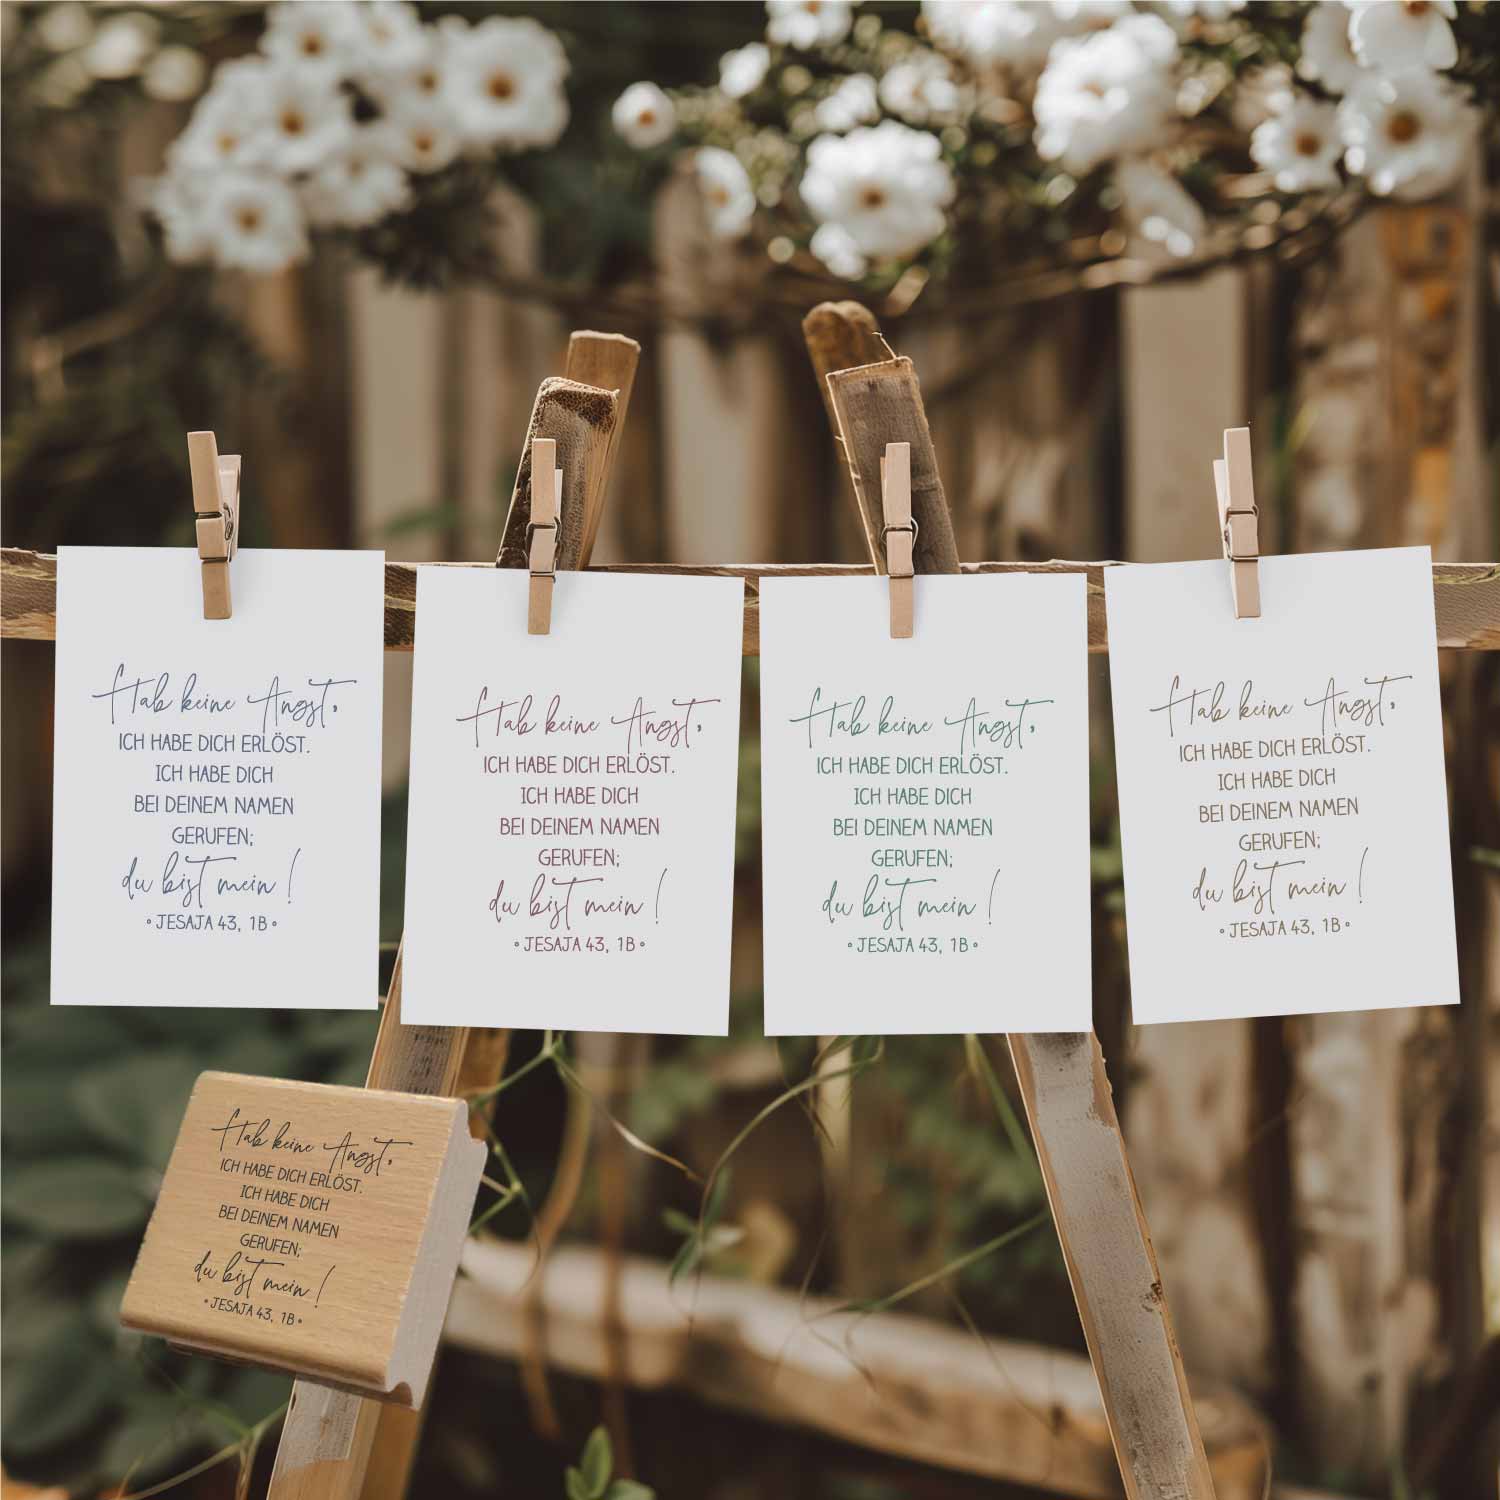 Hab keine Angst,
ICH HABE DICH ERLÖST.
ICH HABE DICH
BEI DEINEM NAMEN
GERUFEN;
du bist mein!
° JESAJA 43, 1B °
Hab keine Angst,
ICH HABE DICH ERLÖST.
ICH HABE DICH
BEI DEINEM NAMEN
GERUFEN;
du bist mein!
° JESAJA 43, 1B °
Hab keine Angst,
ICH HABE DICH ERLÖST.
ICH HABE DICH
BEI DEINEM NAMEN
GERUFEN;
du bist mein!
° JESAJA 43, 1B °
Hab keine Angst,
ICH HABE DICH ERLÖST.
ICH HABE DICH
BEI DEINEM NAMEN
GERUFEN;
du bist mein!
° JESAJA 43, 1B °
Hab keine Angst,
ICH HABE DICH ERLÖST.
ICH HABE DICH
BEI DEINEM NAMEN
GERUFEN;
du bist mein!
° JESAJA 43, 1B °